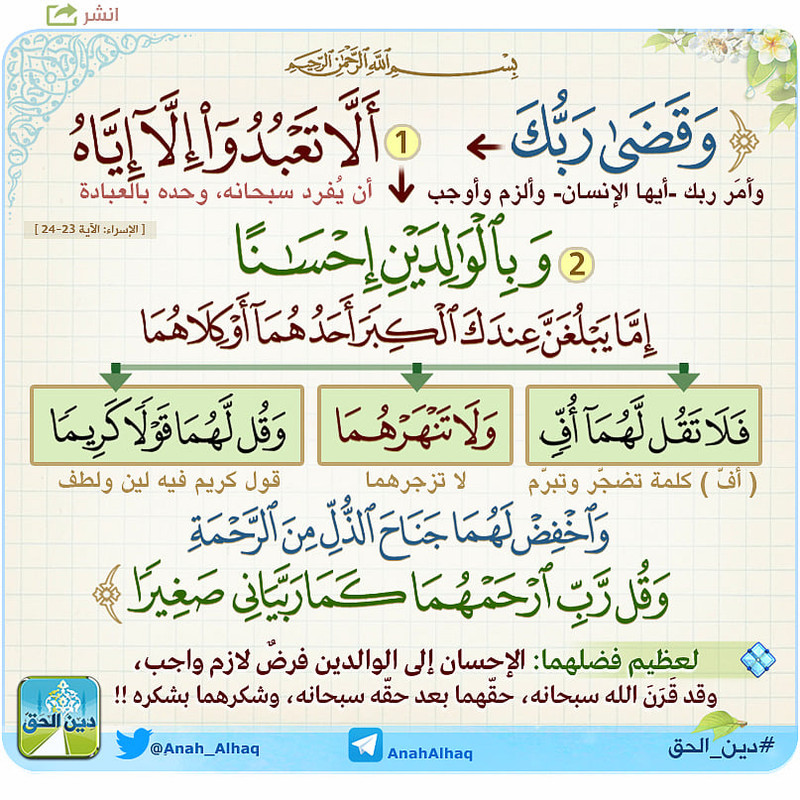 انشر
بِسْمِ اللَّهِ الرَّحْمَٰنِ الرَّحِيمِ
﴿ وَقَضَىٰ رَبُّكَ ← 1 أَلَّا تَعْبُدُوٓا۟ إِلَّآ إِيَّاهُ
وأمَر ربك -أيها الإنسان- وألزم وأوجب ↓ أن يُفرد سبحانه، وحده بالعبادة
[ الإسراء: الآية 23-24 ]
2 وَبِٱلْوَٰلِدَيْنِ إِحْسَـٰنًا
إِمَّا يَبْلُغَنَّ عِندَكَ ٱلْكِبَرَ أَحَدُهُمَآ أَوْ كِلَاهُمَا
فَلَا تَقُل لَّهُمَآ أُفٍّ
وَلَا تَنْهَرْهُمَا
وَقُل لَّهُمَا قَوْلًا كَرِيمًا
( أفّ ) كلمة تضجّر وتبرّم
لا تزجرهما
قول كريم فيه لين ولطف
وَٱخْفِضْ لَهُمَا جَنَاحَ ٱلذُّلِّ مِنَ ٱلرَّحْمَةِ
وَقُل رَّبِّ ٱرْحَمْهُمَا كَمَا رَبَّيَانِى صَغِيرًا ﴾
لعظيم فضلهما: الإحسان إلى الوالدين فرضٌ لازم واجب،
وقد قَرَنَ الله سبحانه، حقّهما بعد حقّه سبحانه، وشكرهما بشكره !!
دين الحق
#دين_الحق
AnahAlhaq
@Anah_Alhaq